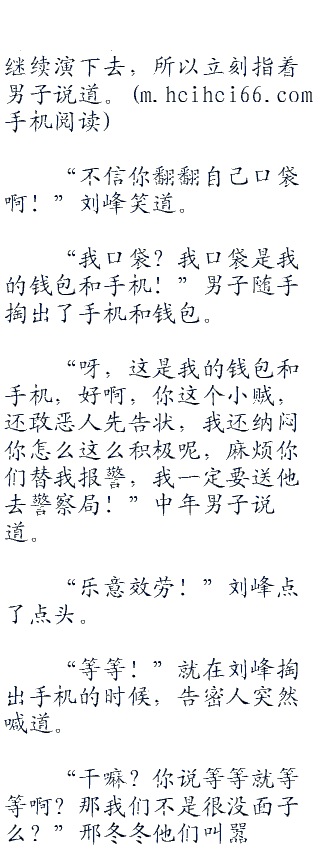 继续演下去，所以立刻指着
男子说道。(m.hcihci66.com
手机阅读)
“不信你翻翻自己口袋
啊！”刘峰笑道。
“我口袋？我口袋是我
的钱包和手机！”男子随手
掏出了手机和钱包。
“呀，这是我的钱包和
手机，好啊，你这个小贼，
还敢恶人先告状，我还纳闷
你怎么这么积极呢，麻烦你
们替我报警，我一定要送他
去警察局！”中年男子说
道。
“乐意效劳！”刘峰点
了点头。
“等等！”就在刘峰掏
出手机的时候，告密人突然
喊道。
“干嘛？你说等等就等
等啊？那我们不是很没面子
么？”邢冬冬他们叫嚣